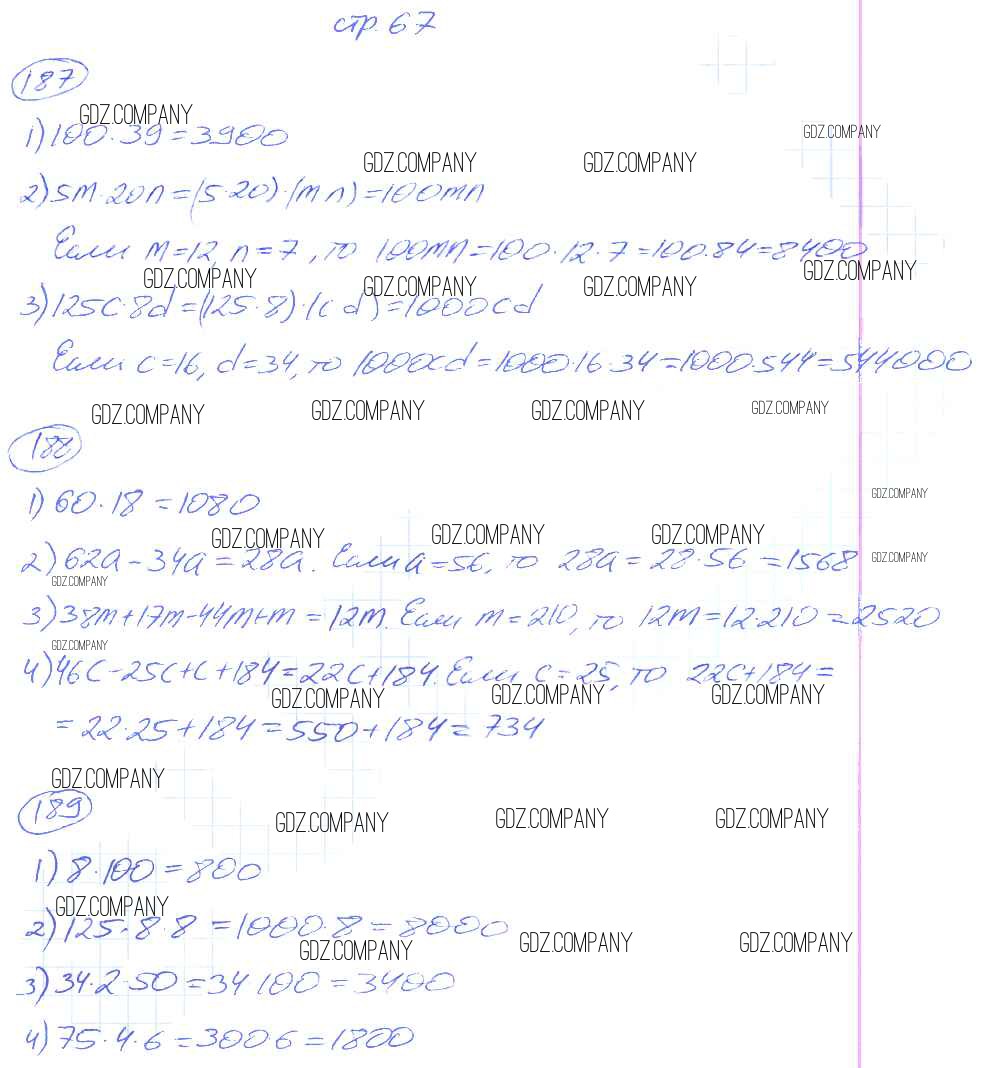 стр. 67
187
GDZ.COMPANY
1) 100·39=3900
GDZ.COMPANY
GDZ.COMPANY GDZ.COMPANY
2) 5m·20n=(5·20)·(mn)=100mn
Если m=12, n=7, то 100mn=100·12·7=100·84=8400
GDZ.COMPANY GDZ.COMPANY GDZ.COMPANY GDZ.COMPANY
3) 125c·8d=(125·8)·(cd)=1000cd
Если c=16, d=34, то 1000cd=1000·16·34=1000·544=544000
GDZ.COMPANY GDZ.COMPANY GDZ.COMPANY GDZ.COMPANY
188
GDZ.COMPANY
1) 60·18=1080
GDZ.COMPANY GDZ.COMPANY GDZ.COMPANY
2) 62a-34a=28a. Если a=56, то 28a=28·56=1568
GDZ.COMPANY
GDZ.COMPANY
3) 38m+17m-44m+m=12m. Если m=210, то 12m=12·210=2520
GDZ.COMPANY
4) 46c-25c+c+184=22c+184. Если c=25, то 22c+184=
GDZ.COMPANY GDZ.COMPANY GDZ.COMPANY
=22·25+184=550+184=734
GDZ.COMPANY
189
GDZ.COMPANY GDZ.COMPANY GDZ.COMPANY
1) 8·100=800
GDZ.COMPANY
2) 125·8·8=1000·8=8000
GDZ.COMPANY GDZ.COMPANY GDZ.COMPANY
3) 34·2·50=34·100=3400
4) 75·4·6=300·6=1800